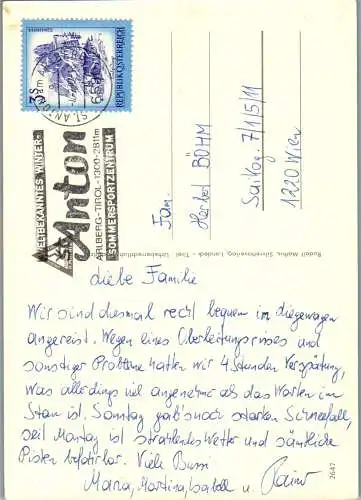 3S
REPUBLIK ÖSTERREICH
WELTBEKANNTES WINTER-
St. Anton
ARLBERG-TIROL-1300-2811m
SOMMERSPORTZENTRUM
Fam.
Herbert BÖHM
7/1/5/11
1220 Wien
Rudolf Mathis, Landeck - Tirol
2647
Liebe Familie
Wir sind diesmal recht bequem im Liegewagen
angereist. Wegen eines Oberleitungsrisses und
sonstiger Probleme hatten wir 4 Stunden Verspätung,
was allerdings viel angenehmer als das Warten im
Stau ist. Sonntag gab's noch starken Schneefall,
seit Montag ist strahlendes Wetter und sämtliche
Pisten befahrbar. Viele Bussi
Maria, Martina, Isabell u. Rainer